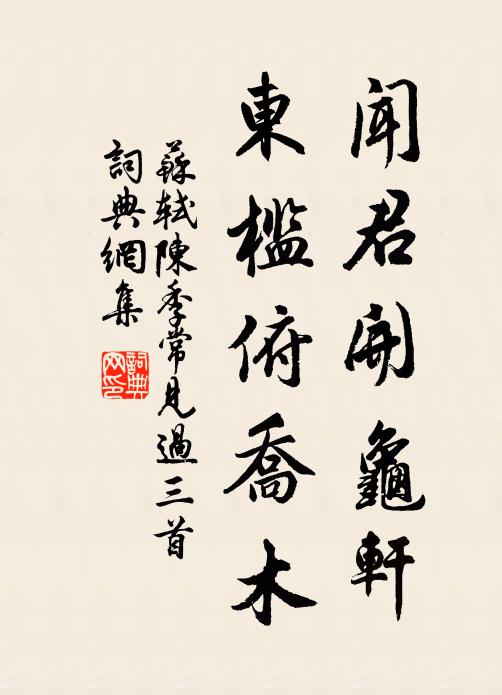 聞君開龜軒
東檻俯喬木
蘇軾陳季常見過三首
詞典網集
詞典
网印